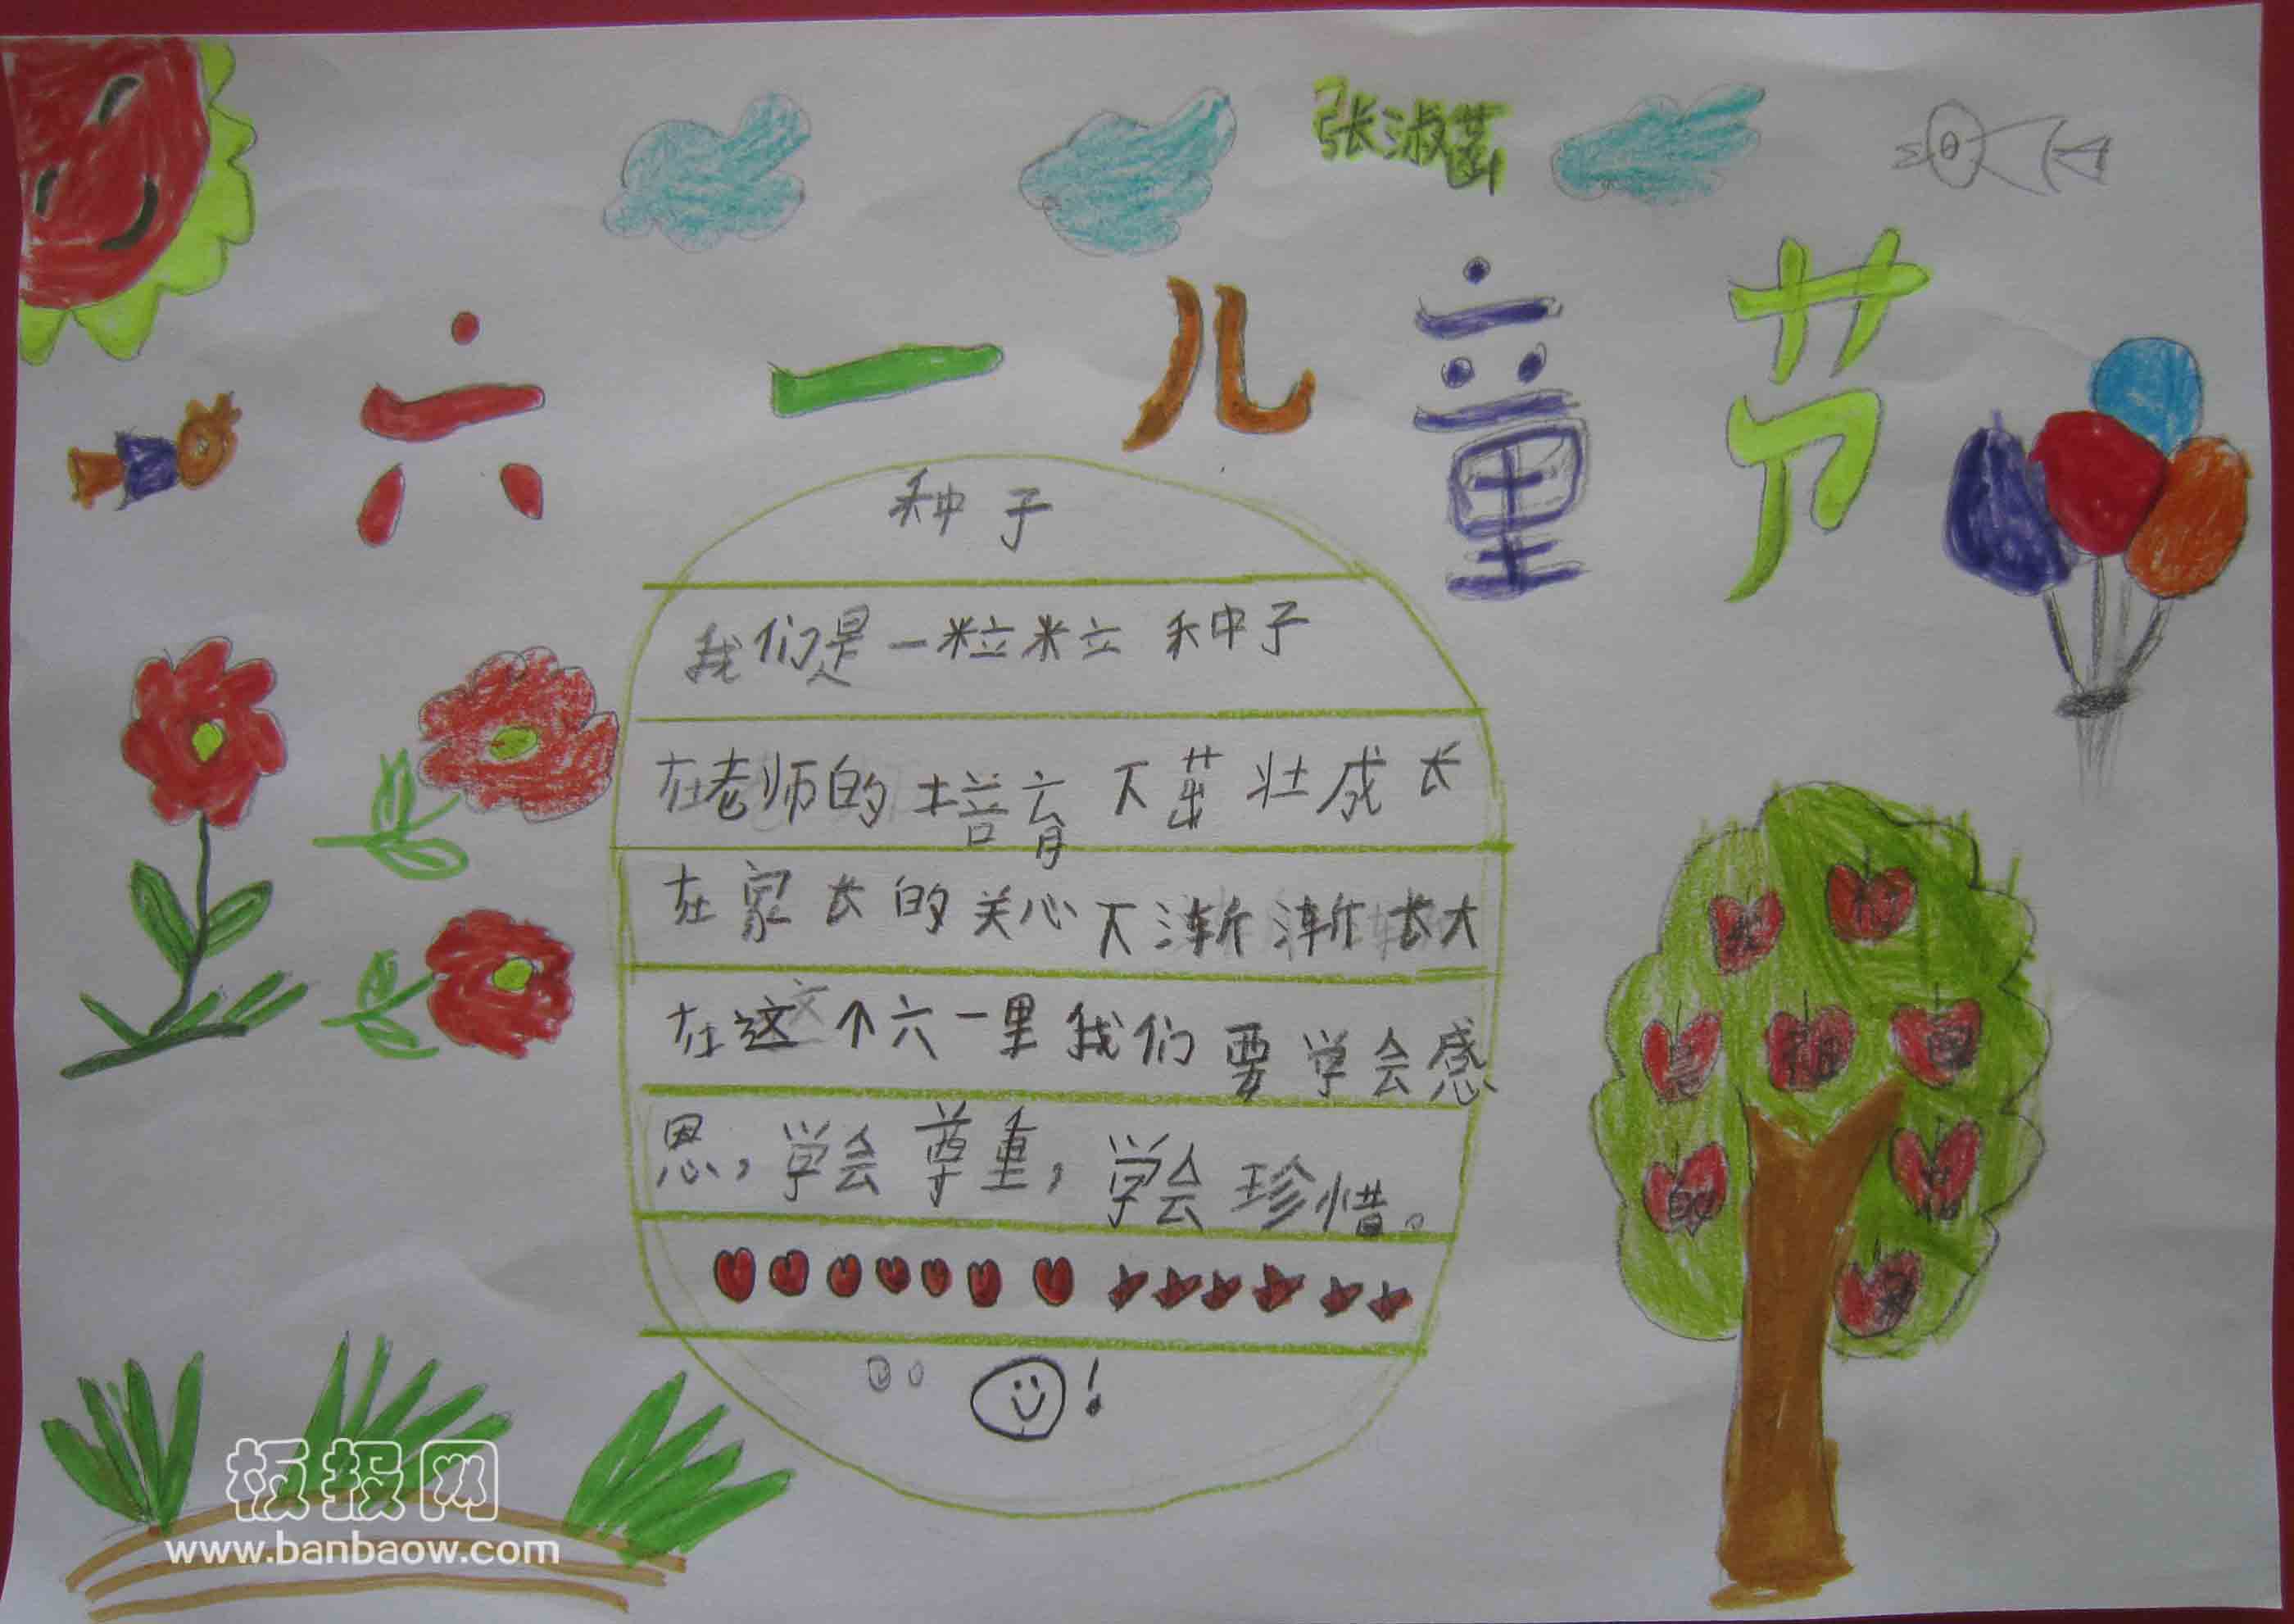 张淑菡
六一儿童节
种子
我们是一粒粒种子
在老师的培育下茁壮成长
在家长的关心下渐渐长大
在这个六一里我们要学会感
恩，学会尊重，学会珍惜。
!
板报网
www.banbaow.com